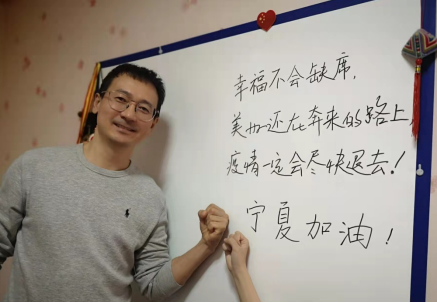 幸福不会缺席,
美好还在奔来的路上,
疫情一定会尽快退去!
宁夏加油!